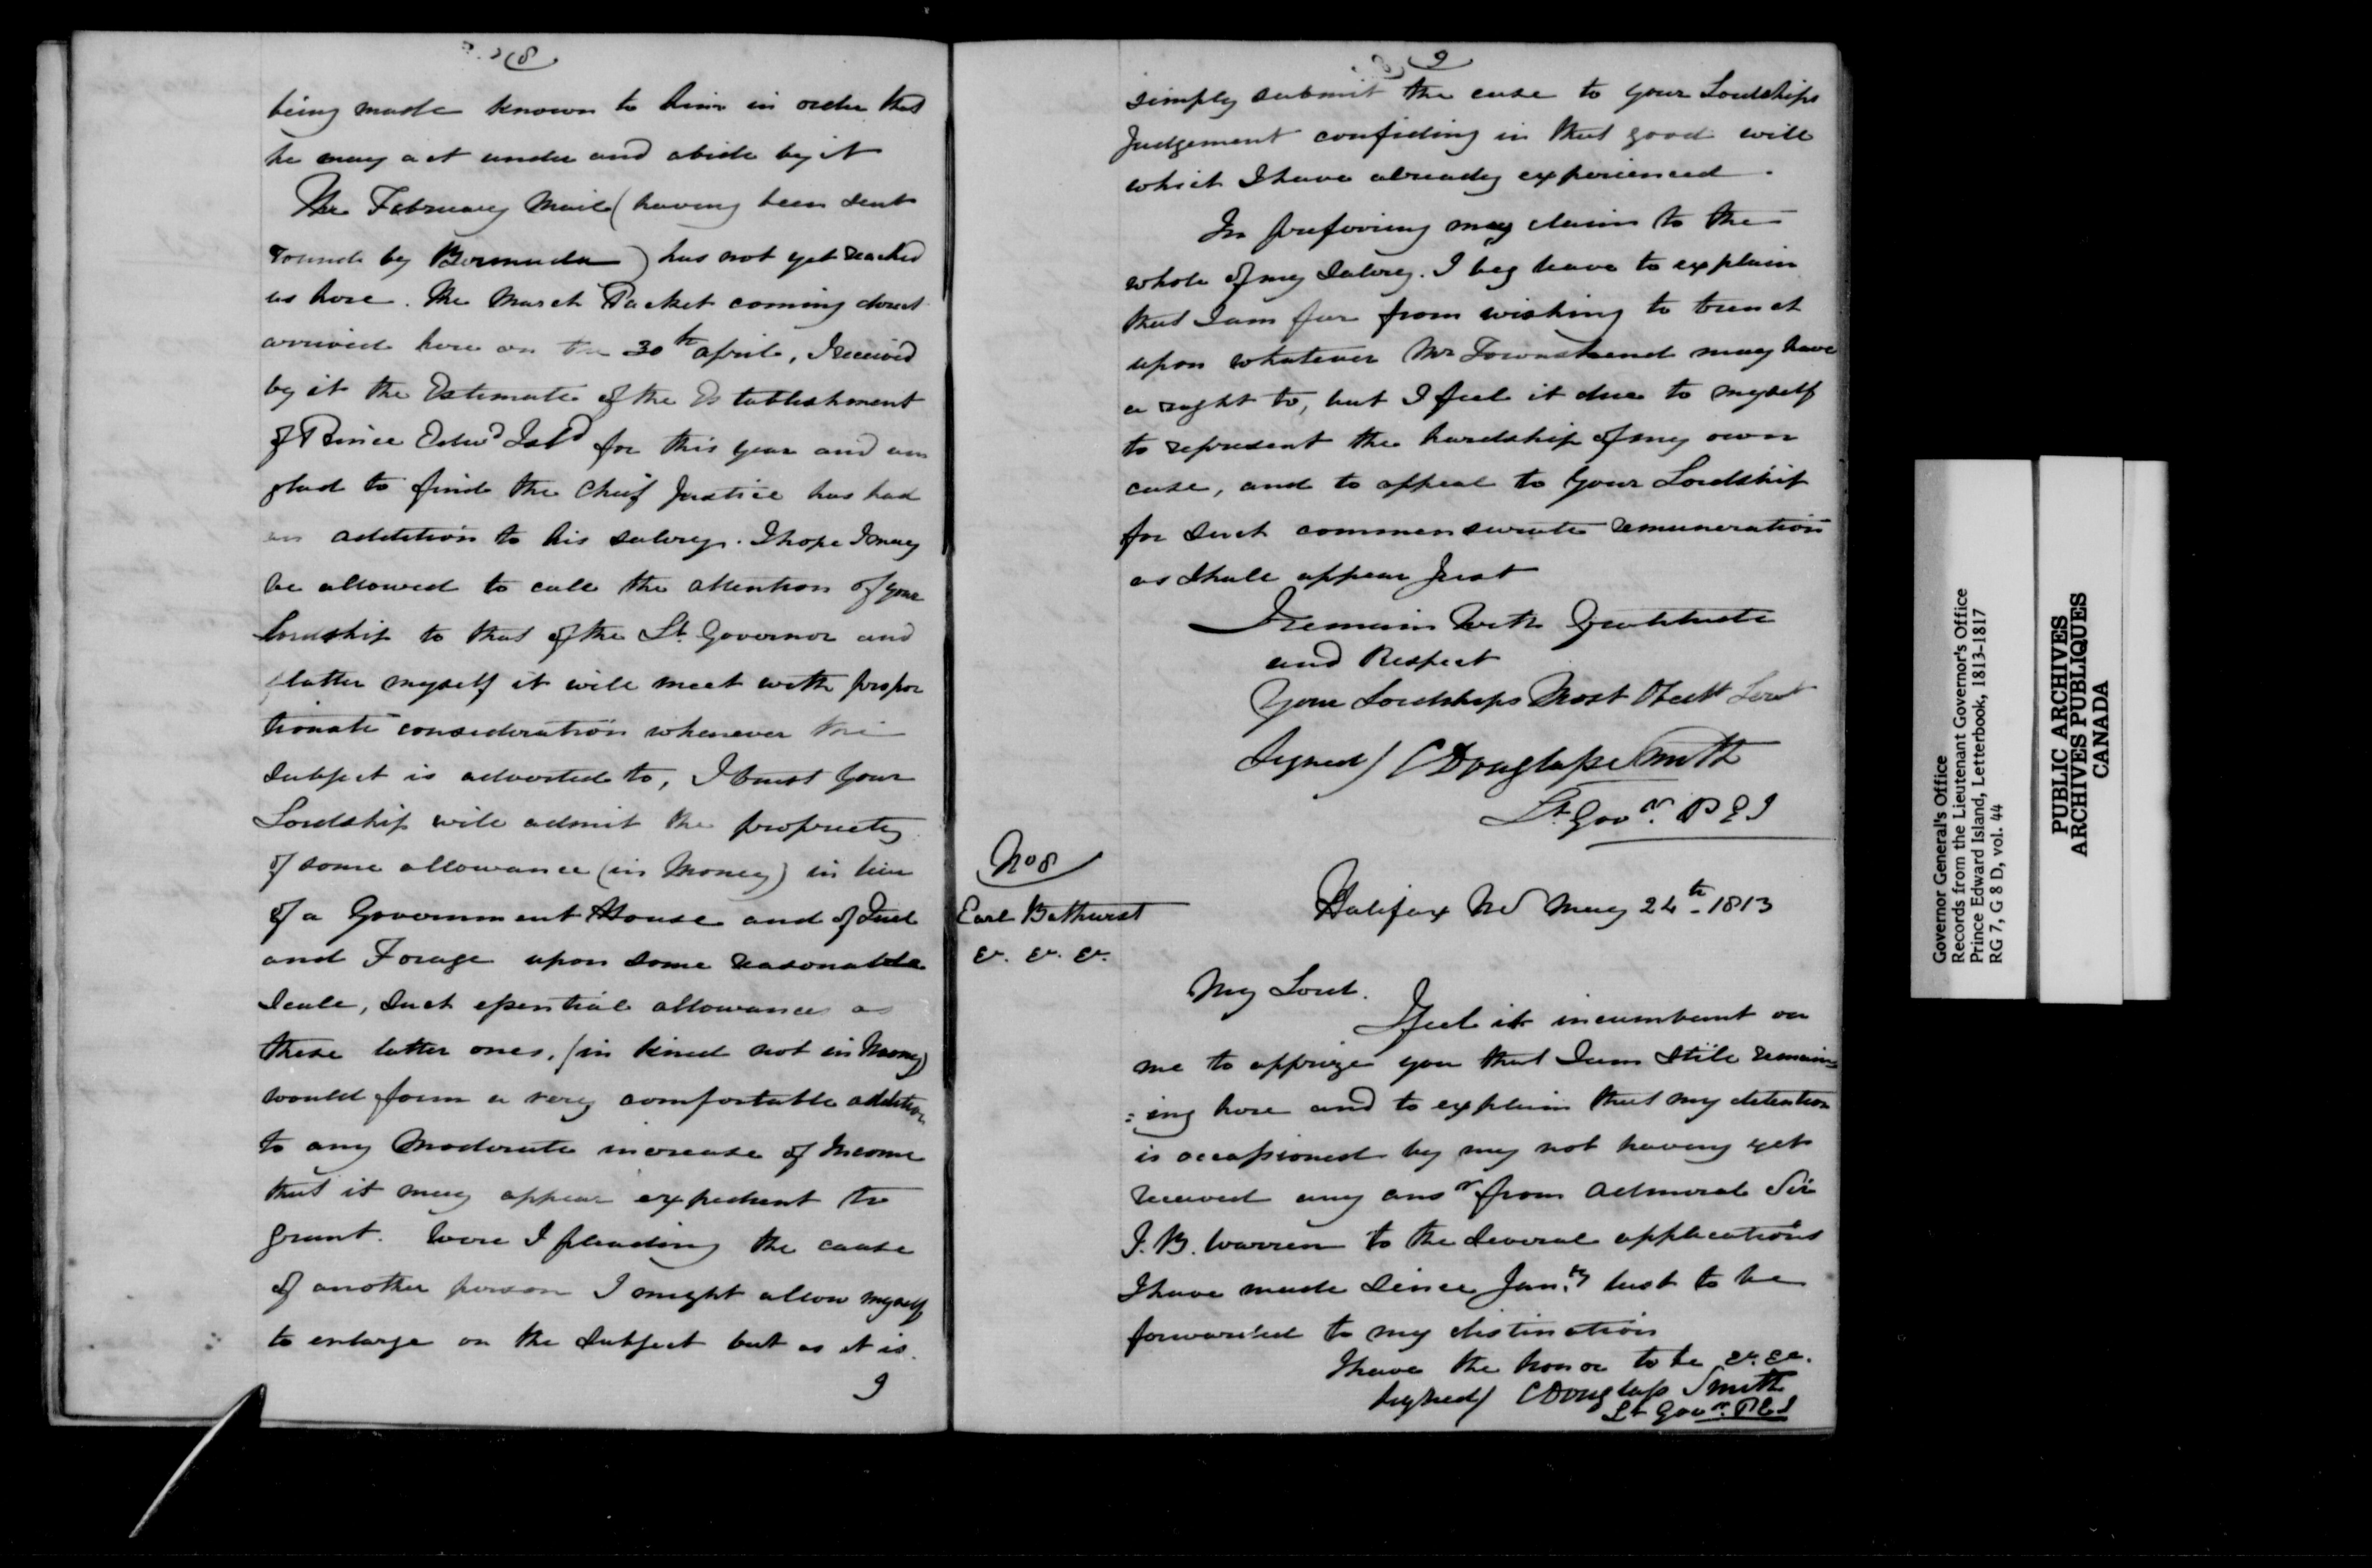 8
being made known to him in order that
he may act under and abide by it
The February Mail (having been sent
round by Bermuda) has not yet reached
us here. The March Packet coming direct
arrived here on the 30th April, I received
by it the Estimate of the Establishment
of Prince Edwd Isld for this year and am
glad to find the Chief Justice has had
an addition to his salary. I hope I may
be allowed to call the attention of your
Lordship to that of the Lt. Governor and
flatter myself it will meet with propor
tionate consideration whenever the
subject is adverted to, I trust your
Lordship will admit the propriety
of some allowance (in Money) in lieu
of a Government House and of Fuel
and Forage upon some reasonable
Scale, such essential allowances as
these latter ones, (in kind not in Money)
would form a very comfortable addition
to any Moderate increase of Income
that it may appear expedient to
grant. Were I pleading the cause
of another person I might allow myself
to enlarge on the subject but as it is
I
9
simply submit the case to your Lordships
Judgement confiding in that good will
which I have already experienced.
In prefering my claim to the
whole of my Salary. I beg leave to explain
that I am far from wishing to trench
upon whatever Mr Townshend may have
a right to, but I feel it due to myself
to represent the hardship of my own
case, and to appeal to your Lordship
for such commensurate remuneration
as shall appear just
I remain With Gratitude
and Respect
Your Lordships Most Obedt Servt
Signed/ C Douglass Smith
Lt Govr. P E I
No 8
Earl Bathurst
&c. &c. &c.
Halifax NS May 24th 1813
My Lord.
I feel it incumbent on
me to apprize you that I am still remain=
=ing here and to explain that my detention
is occassioned by my not having yet
received any ansr from Admiral Sir
J. B. Warren to the several applications
I have made since Jany last to be
forwarded to my distination
I have the honor to be &c. &c.
Signed/ C Douglass Smith
Lt Govr. P E I
Governor General's Office
Records from the Lieutenant Governor's Office
Prince Edward Island, Letterbook, 1813-1817
RG 7, G 8 D, vol. 44
PUBLIC ARCHIVES
ARCHIVES PUBLIQUES
CANADA